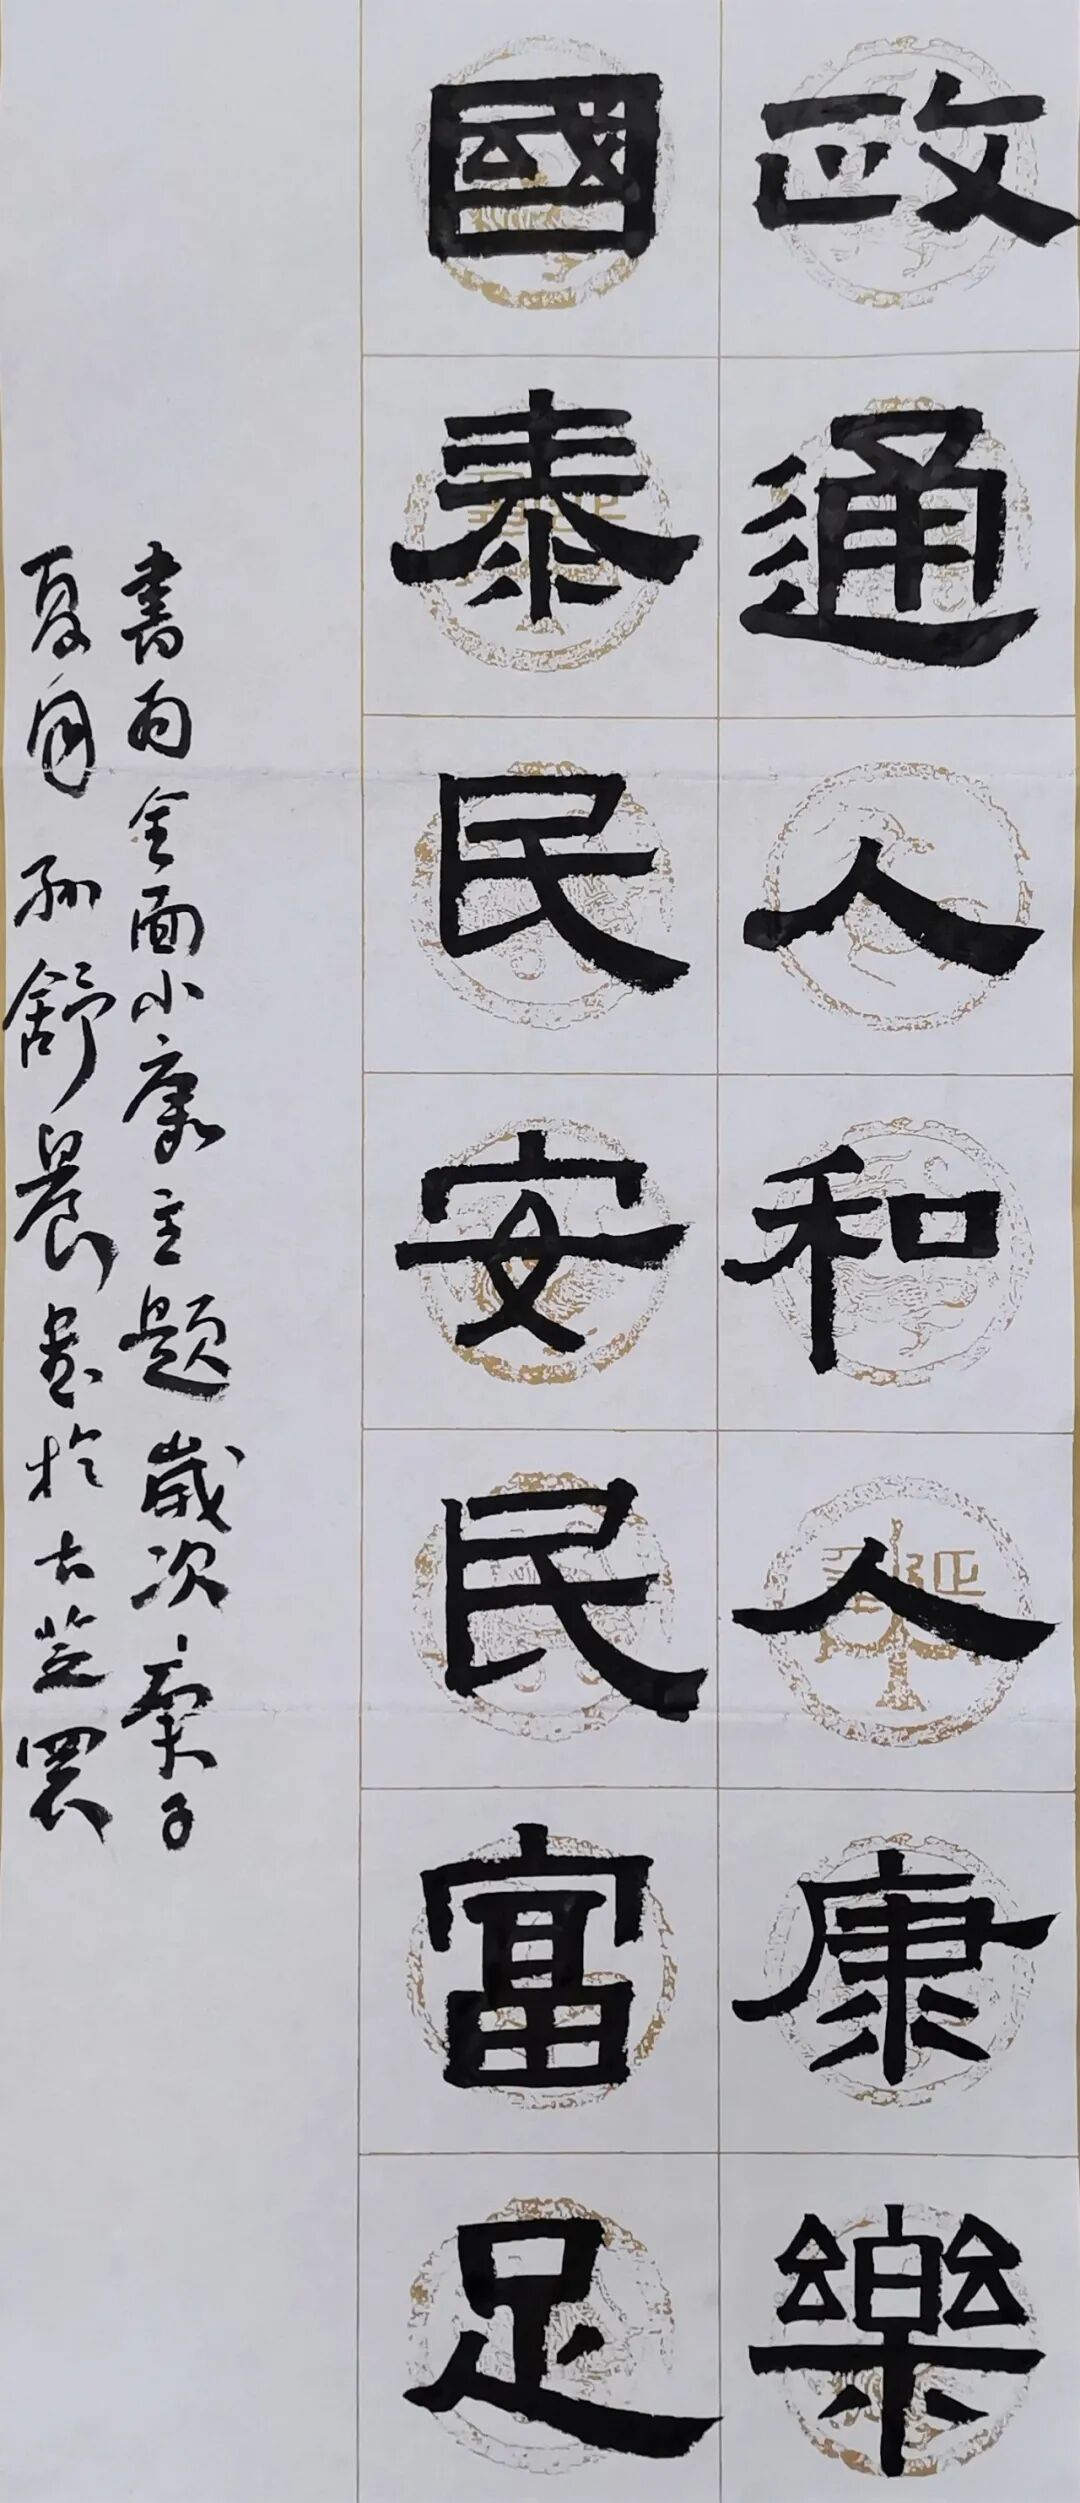 政通人和人康樂
國泰民安民富足
書全面小康主题歲次庚子
夏月孙舒晨書於古芝罘